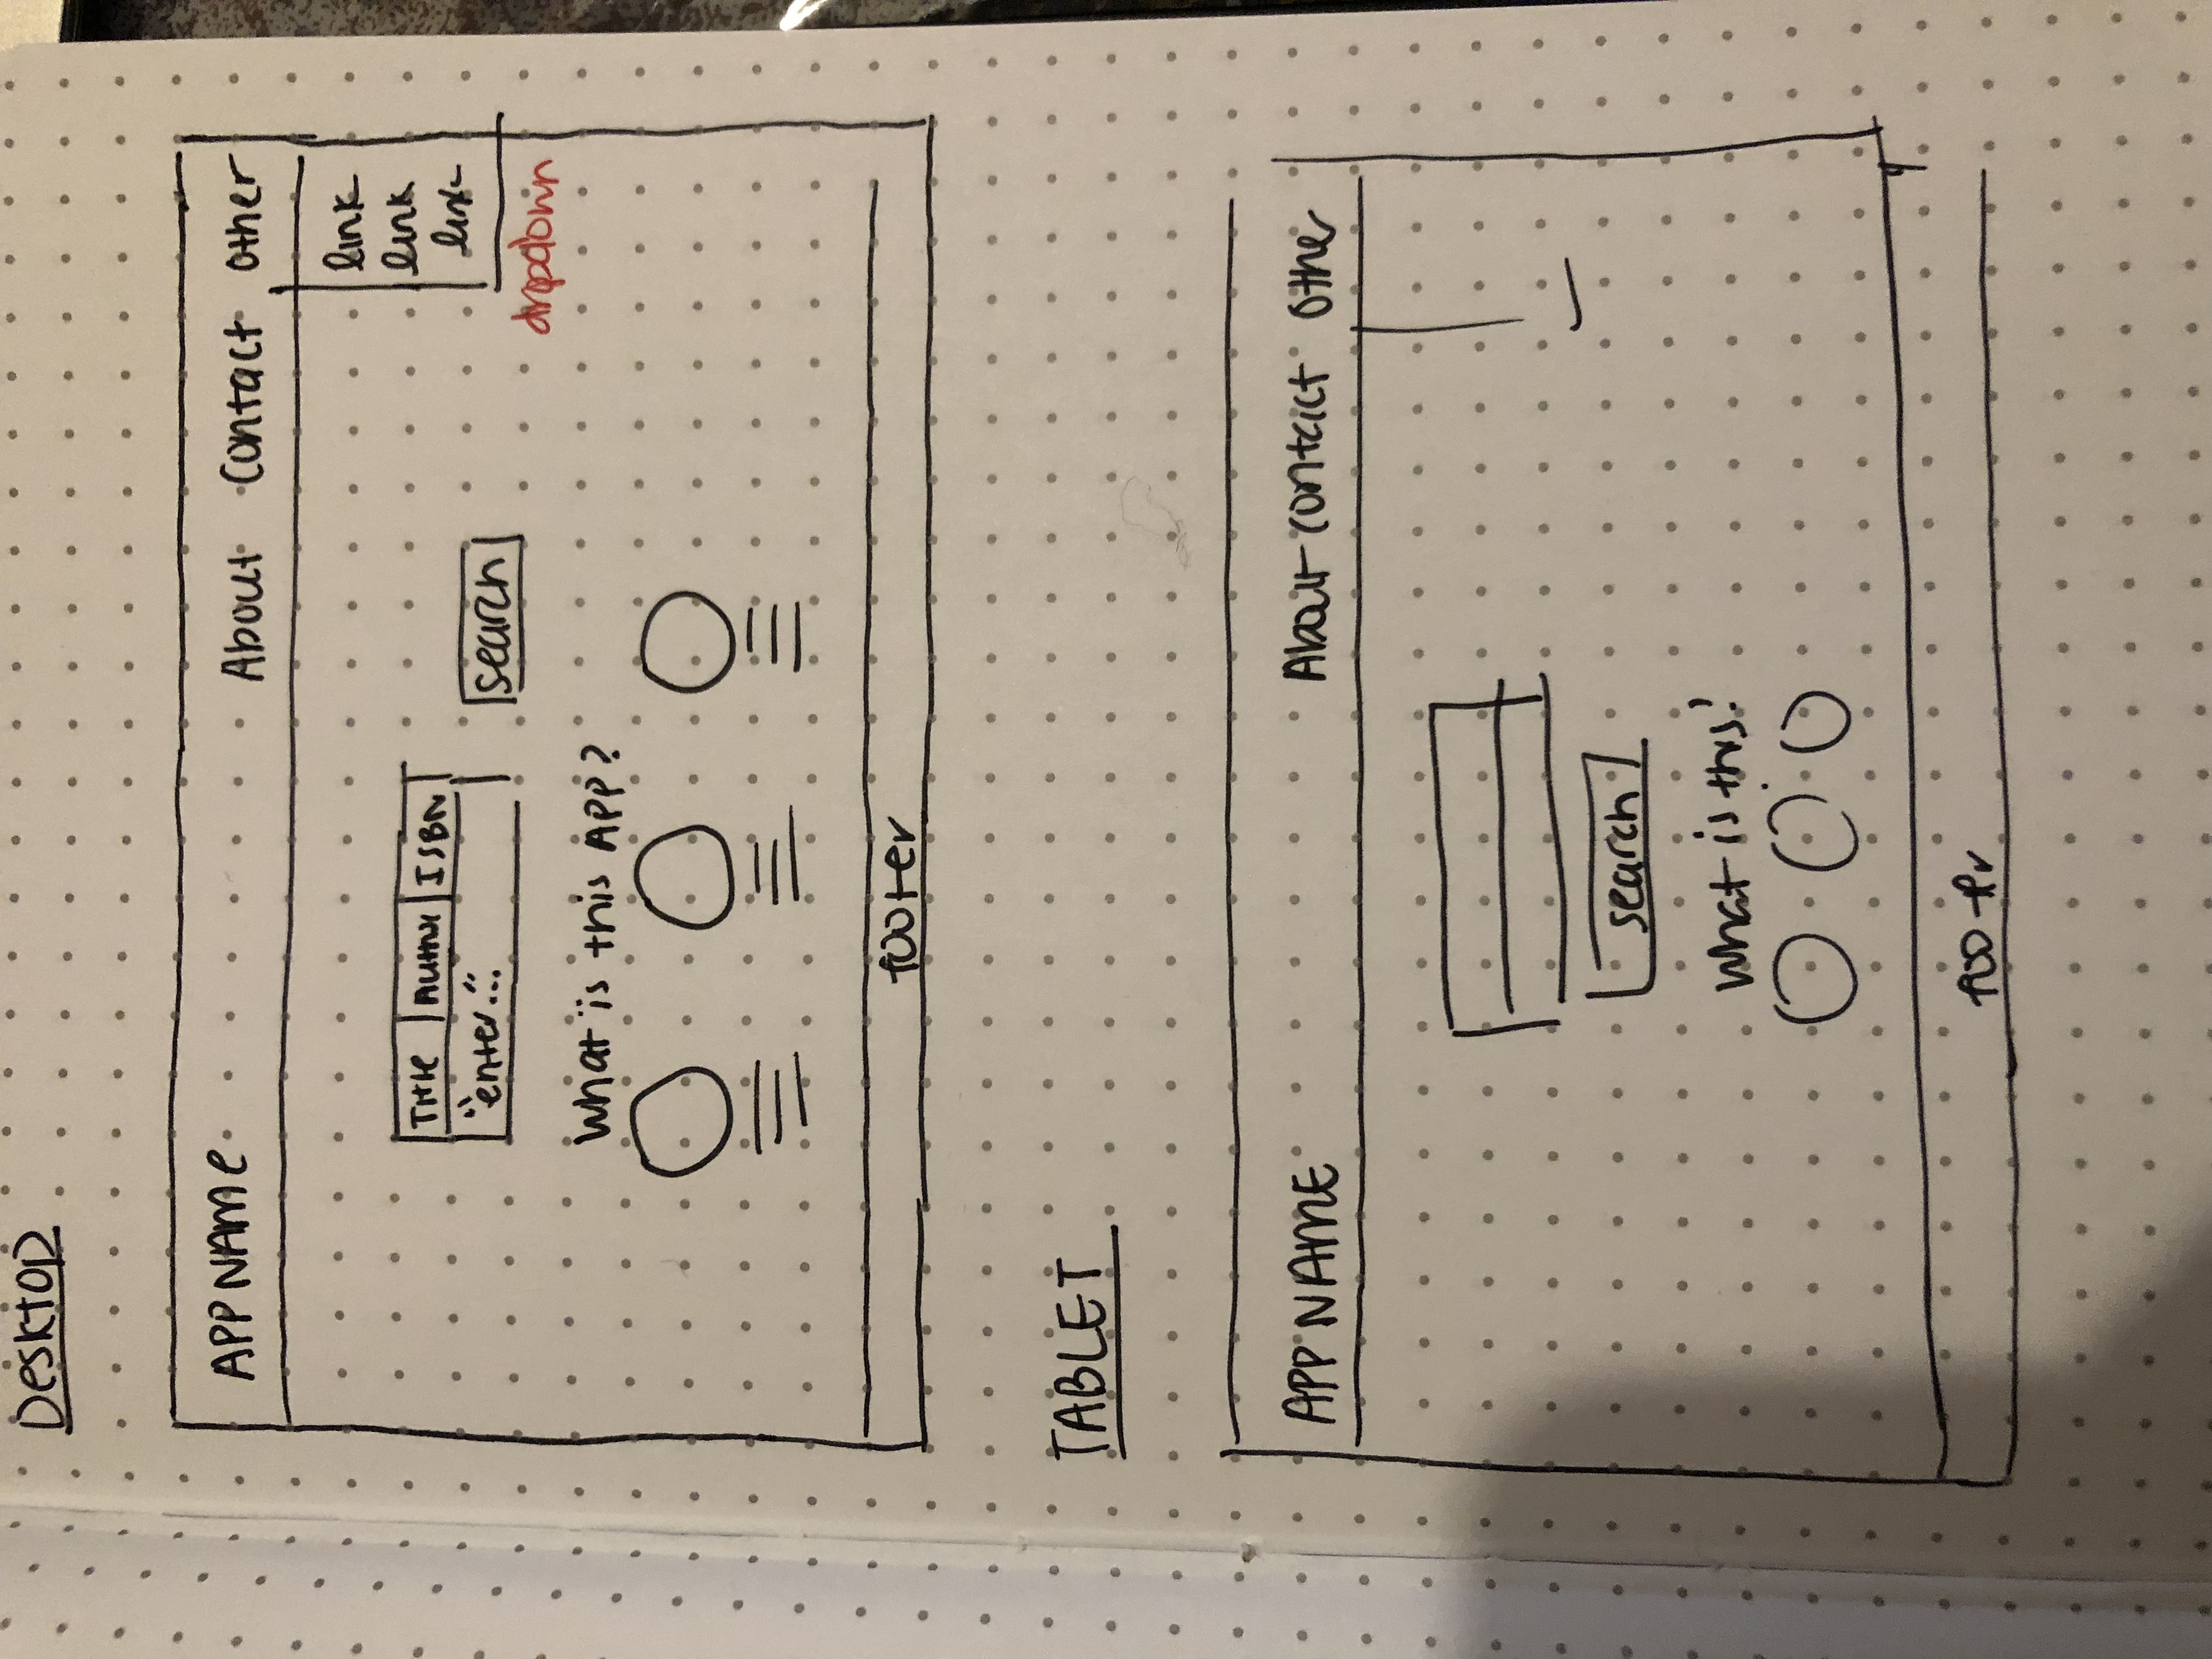 Desktop
APP NAME About Contact Other
link
link
link
Title Author ISBN
"enter..."
search
dropdown
What is this APP?
footer
TABLET
APP NAME About contact other
search
What is this?
footer